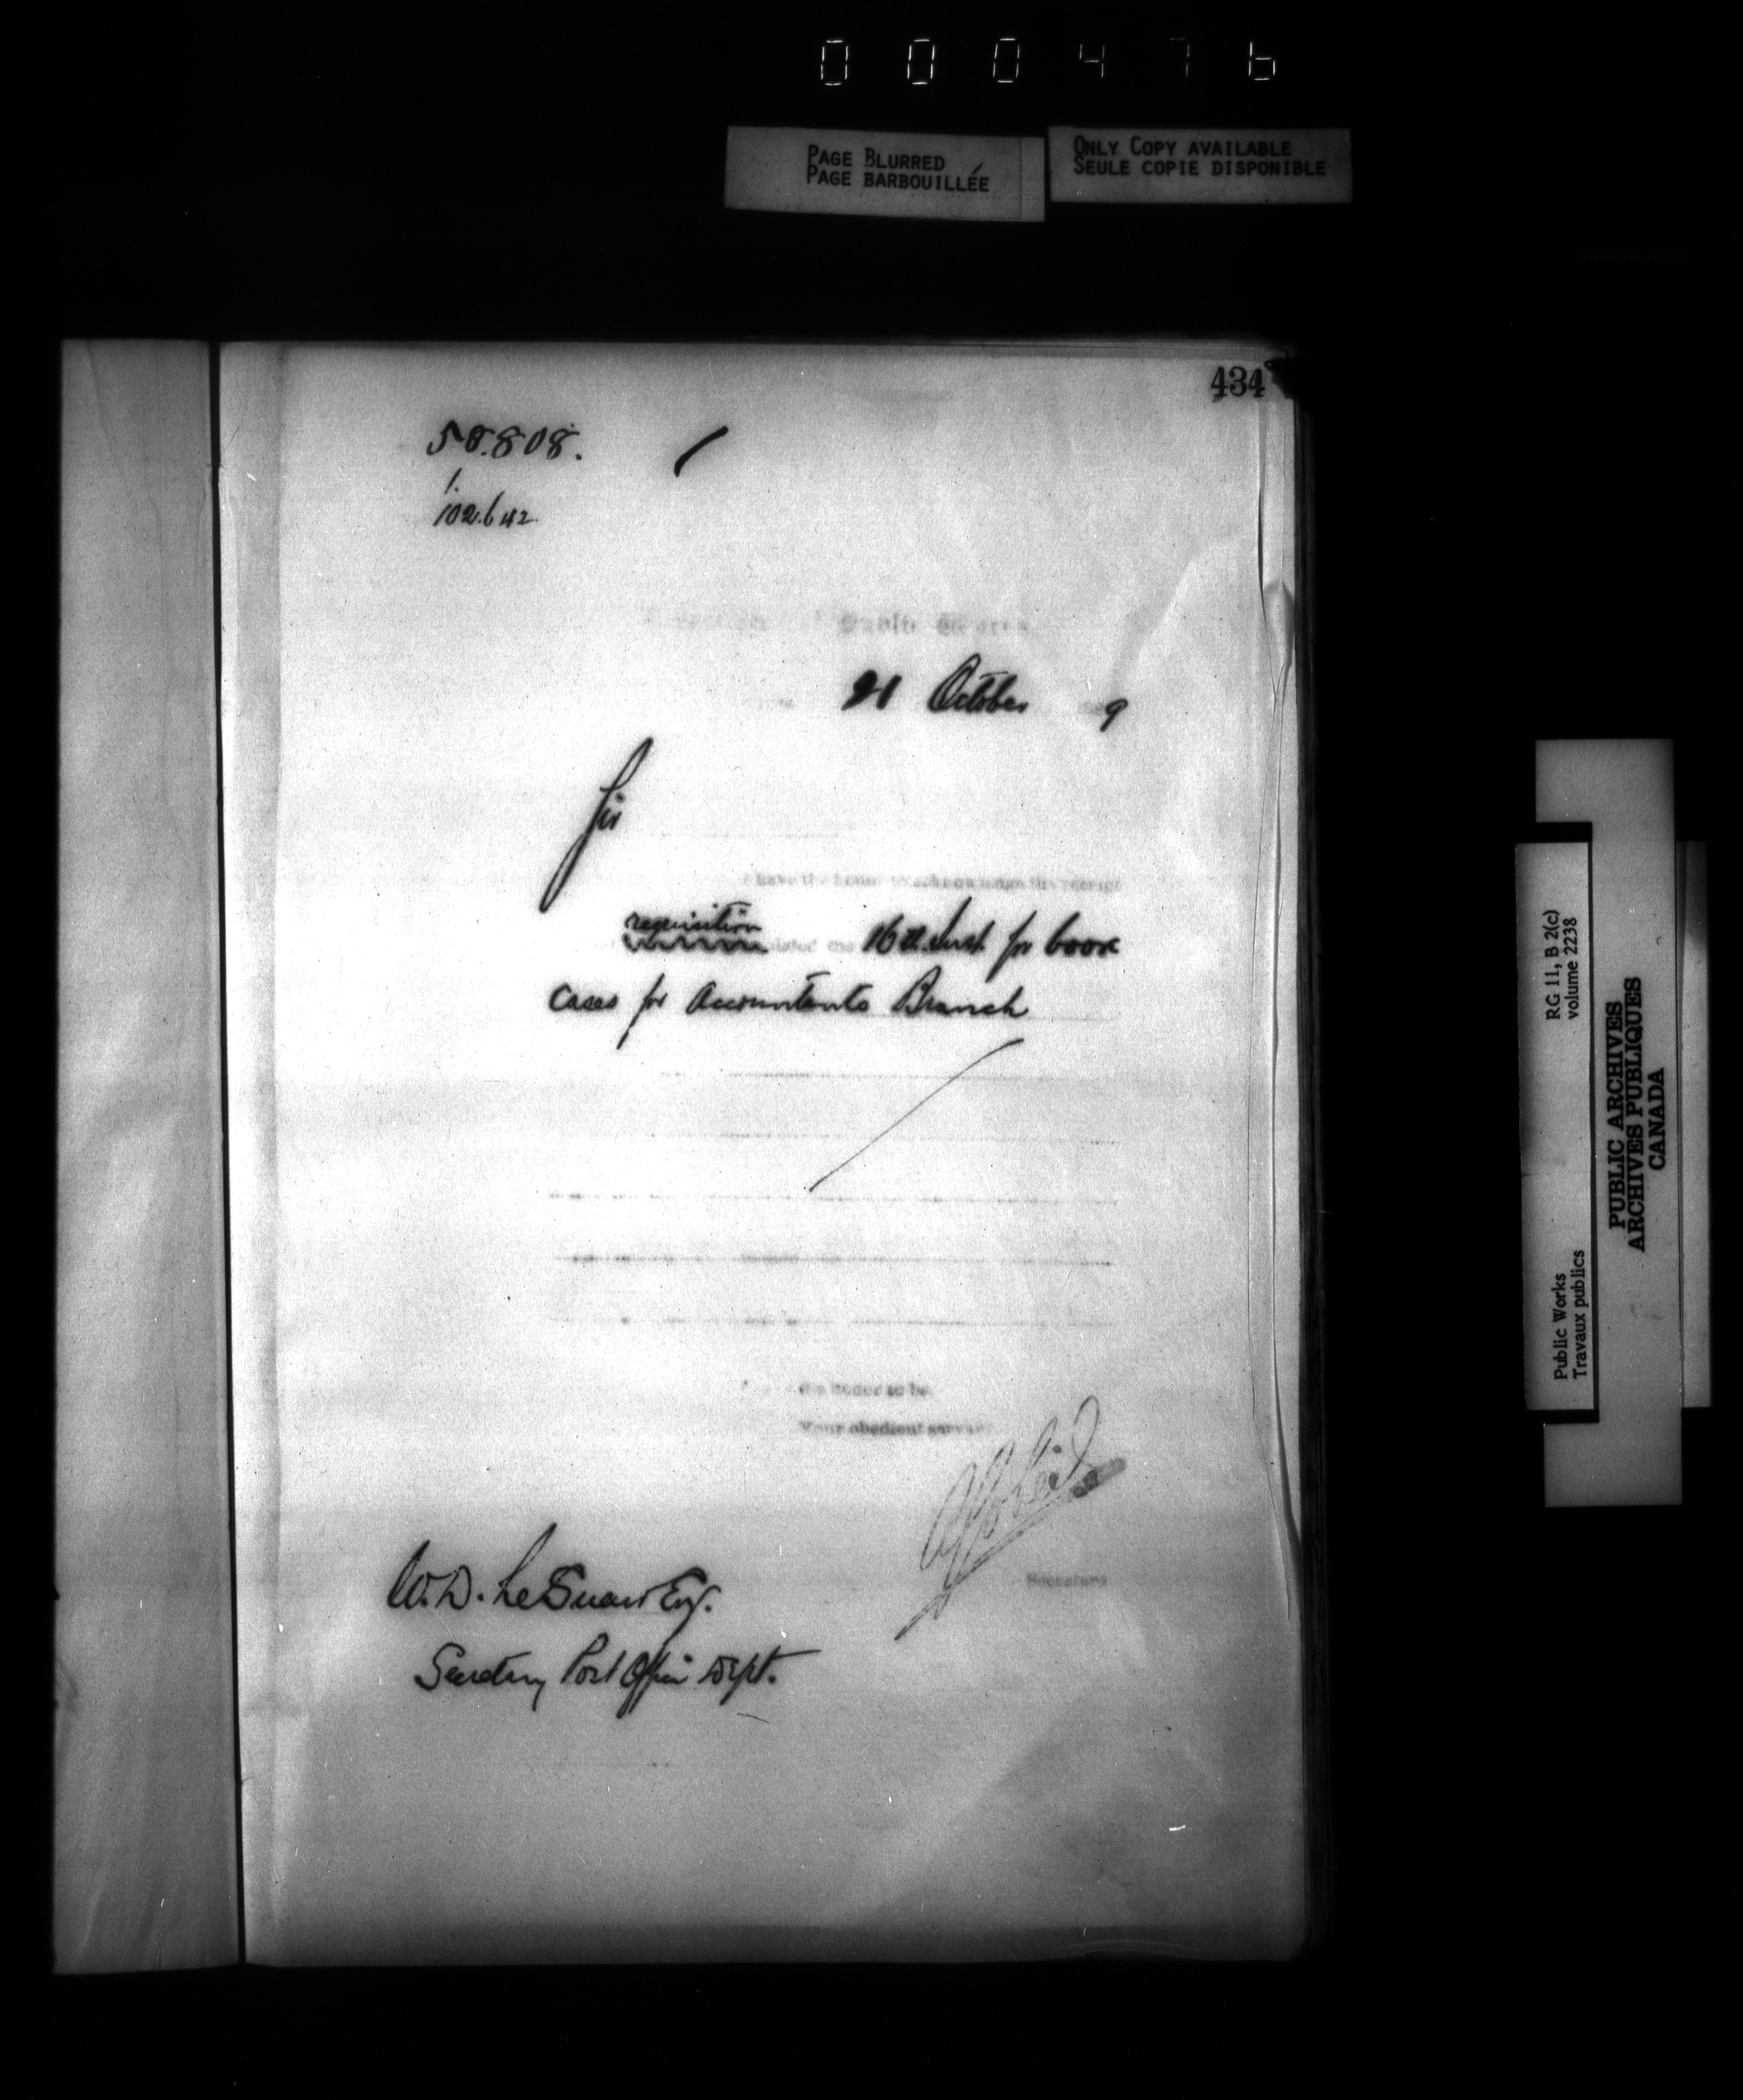 000476
PAGE BLURRED
PAGE BARBOUILLÉE
ONLY COPY AVAILABLE
SEULE COPIE DISPONIBLE
434
58.808.
1.
102.642
Public Works
21 October 9
Sir
have the honor to acknowledge the receipt
requisition dated the 16th Inst for book
cases for Accountants Branch
the honor to be
Your obedient servant
Secretary
W. D. LeSueur Esq.
Secretary Post Office Dept.
RG 11, B 2(c)
volume 2238
Public Works
Travaux publics
PUBLIC ARCHIVES
ARCHIVES PUBLIQUES
CANADA